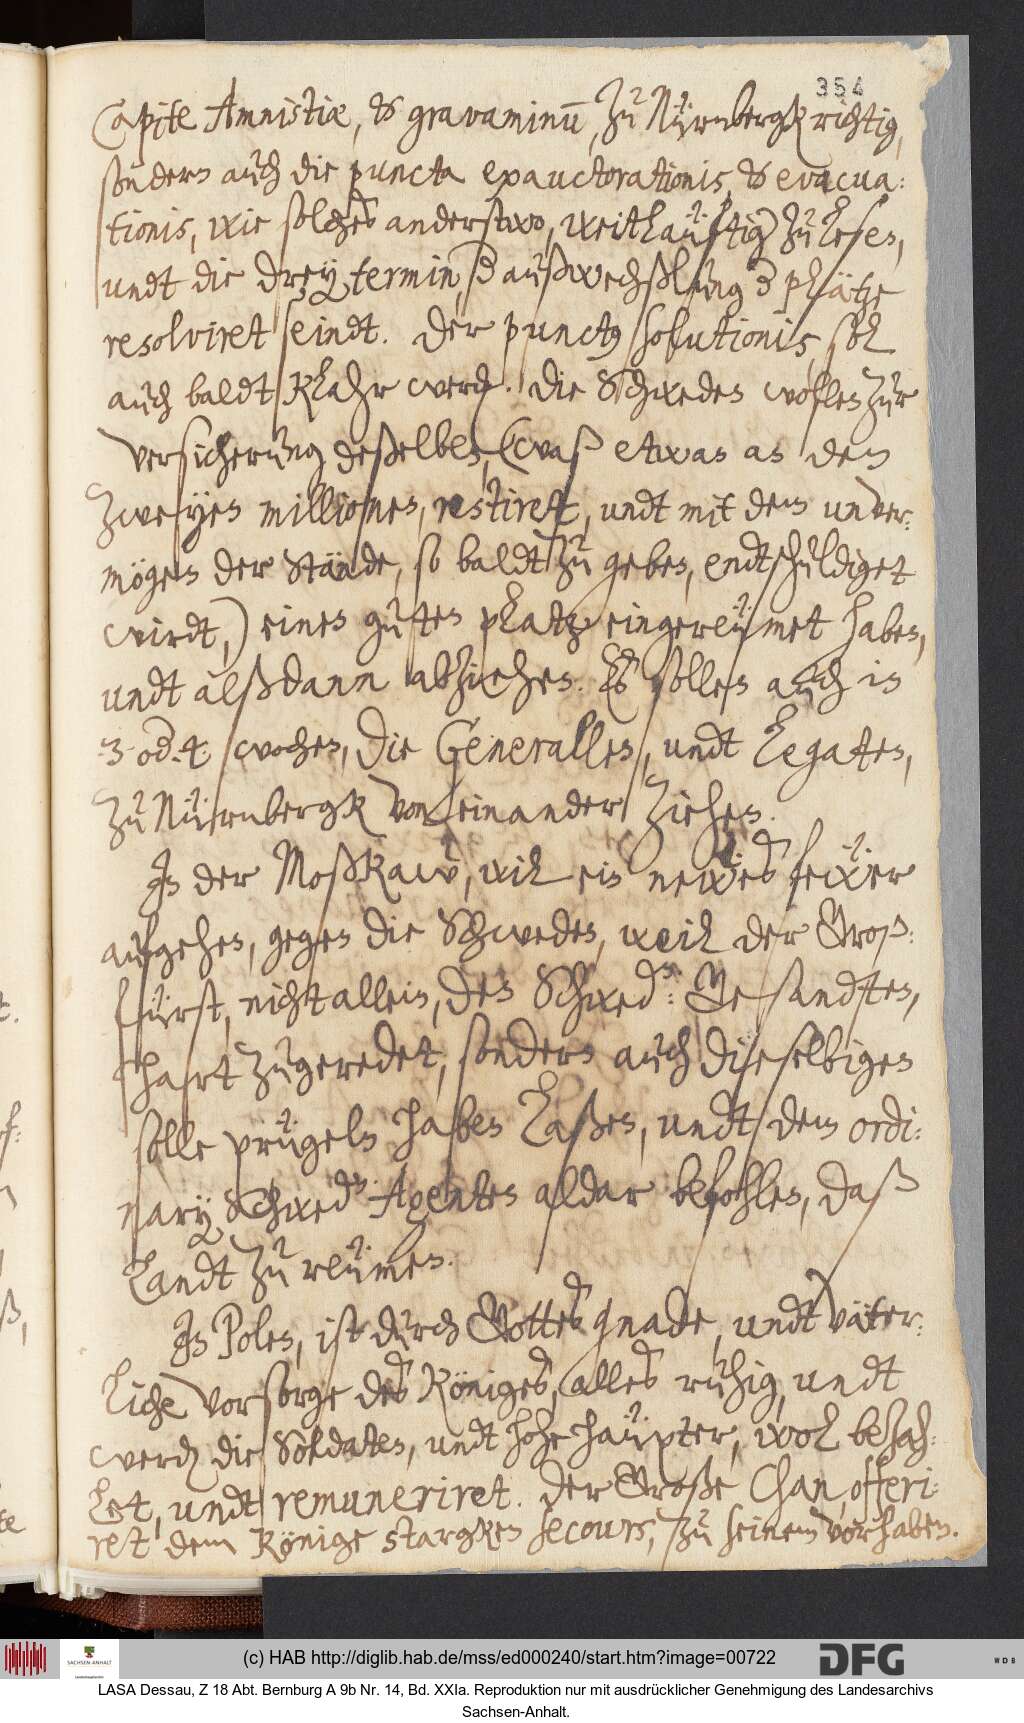 354
Capite Amnistiæ, & gravaminū, zu Nürnbergk richtig,
sondern auch die puncta exauctorationis, & evacua:
tionis, wie solches anderstwo, weitläuftig zu lesen,
undt die drey termin, d außwechßlung d plätze
resolviret seindt. Der punctus solutionis, sol
auch baldt klahr werden. Die Schweden wollen zur
versicherung deßelben, (waß etwas an den
zweyen millionen, restiret, undt mit dem unver:
mögen der Stände, so baldt zu geben, endtschuldiget
wirdt,) einen guten platz eingereümet haben,
undt alßdann abziehen. Es sollen auch in
3 od. 4. wochen, die Generallen, undt Legaten,
zu Nürnbergk von einander ziehen.
In der Moßkaw, wil ein newes fewer
aufgehen, gegen die Schweden, weil der Groß:
fürst, nicht allein, den Schwed:en Gesandten,
hart zugeredet, sondern auch dieselbigen
solle prügeln haben laßen, undt dem ordi:
nary Schweden Agenten aldar befohlen, daß
Landt zu reümen.
In Polen, ist durch Gottes gnade, undt väter:
liche vorsorge des Königes, alles ruhig, undt
werden die Soldaten, undt hohe haüpter, wol bezah:
let, undt remuneriret. Der Große Chan, offeri:
ret dem Könige starcken secours, zu seinem vorhaben.
(c) HAB http://diglib.hab.de/mss/ed000240/start.htm?image=00722
SACHSEN-ANHALT
DFG
WDB
LASA Dessau, Z 18 Abt. Bernburg A 9b Nr. 14, Bd. XXIa. Reproduktion nur mit ausdrücklicher Genehmigung des Landesarchivs
Sachsen-Anhalt.